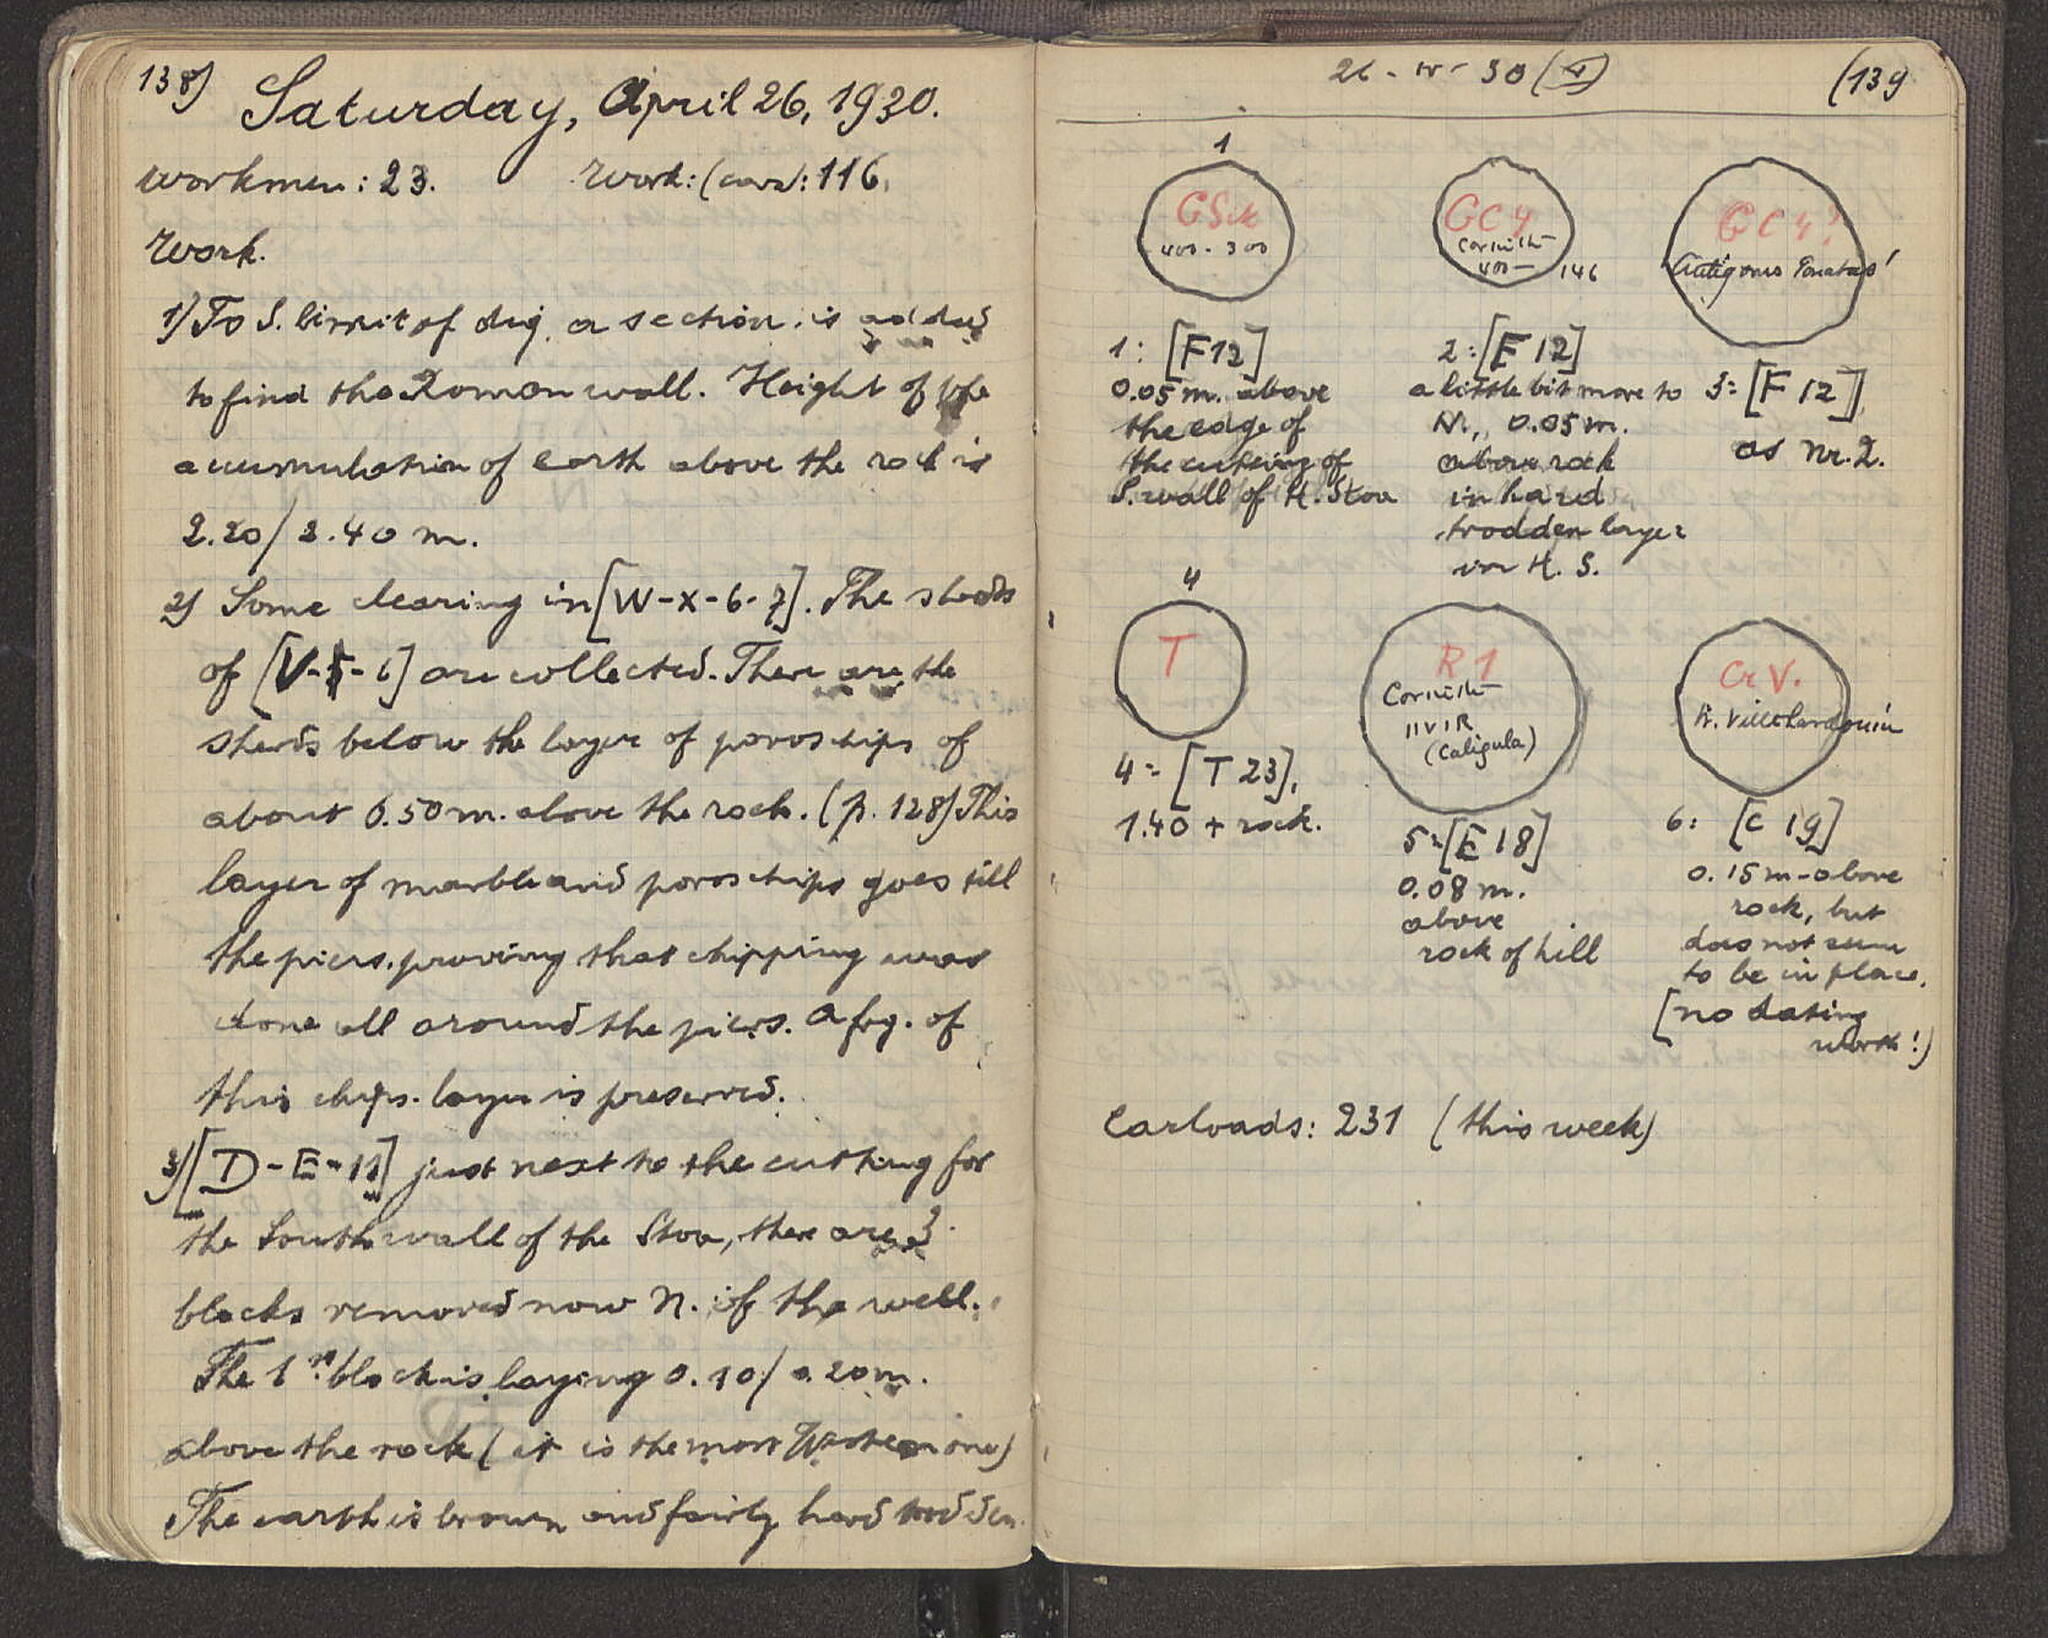 138)
Saturday, April 26, 1930.
Workmen: 23. Work: (cars): 116.
Work.
1) To S. limit of dig, a section is added
to find the Roman wall. Height of the
accumulation of earth above the rock is
2.20/2.40 m.
2) Some clearing in [W-X-6-7]. The sherds
of [V-5-6] are collected. There are the
sherds below the layer of poros chips of
about 0.50 m. above the rock. (p. 128) This
layer of marble and poros chips goes till
the piers, proving that chipping was
done all around the piers. A frg. of
this chips-layer is preserved.
3) [D-E-11] just next to the cutting for
the South wall of the Stoa, there are 3
blocks removed now N. of the well.
The 1st block is laying 0.10/0.20 m.
above the rock (it is the most Western one)
The earth is brown and fairly hard trodden.
26 - IV - 30 (V)
(139
1
GSik
400-300
GC4
Corinth
400-146
GC4?
Antigonos Gonatas
1: [F12]
0.05 m. above
the edge of
the cutting of
S. wall of H. Stoa
2: [E 12]
a little bit more to
N., 0.05 m.
above rock
in hard
trodden layer
in H. S.
3: [F 12]
as nr. 2.
4
T
R1
Corinth
IIVIR
(Caligula)
Cr V.
Villehardouin
4 = [T 23],
1.40 + rock.
5 = [E 18]
0.08 m.
above
rock of hill
6: [C 19]
0.15 m - above
rock, but
does not seem
to be in place.
[no dating
worth!)
Carloads: 231 (this week)